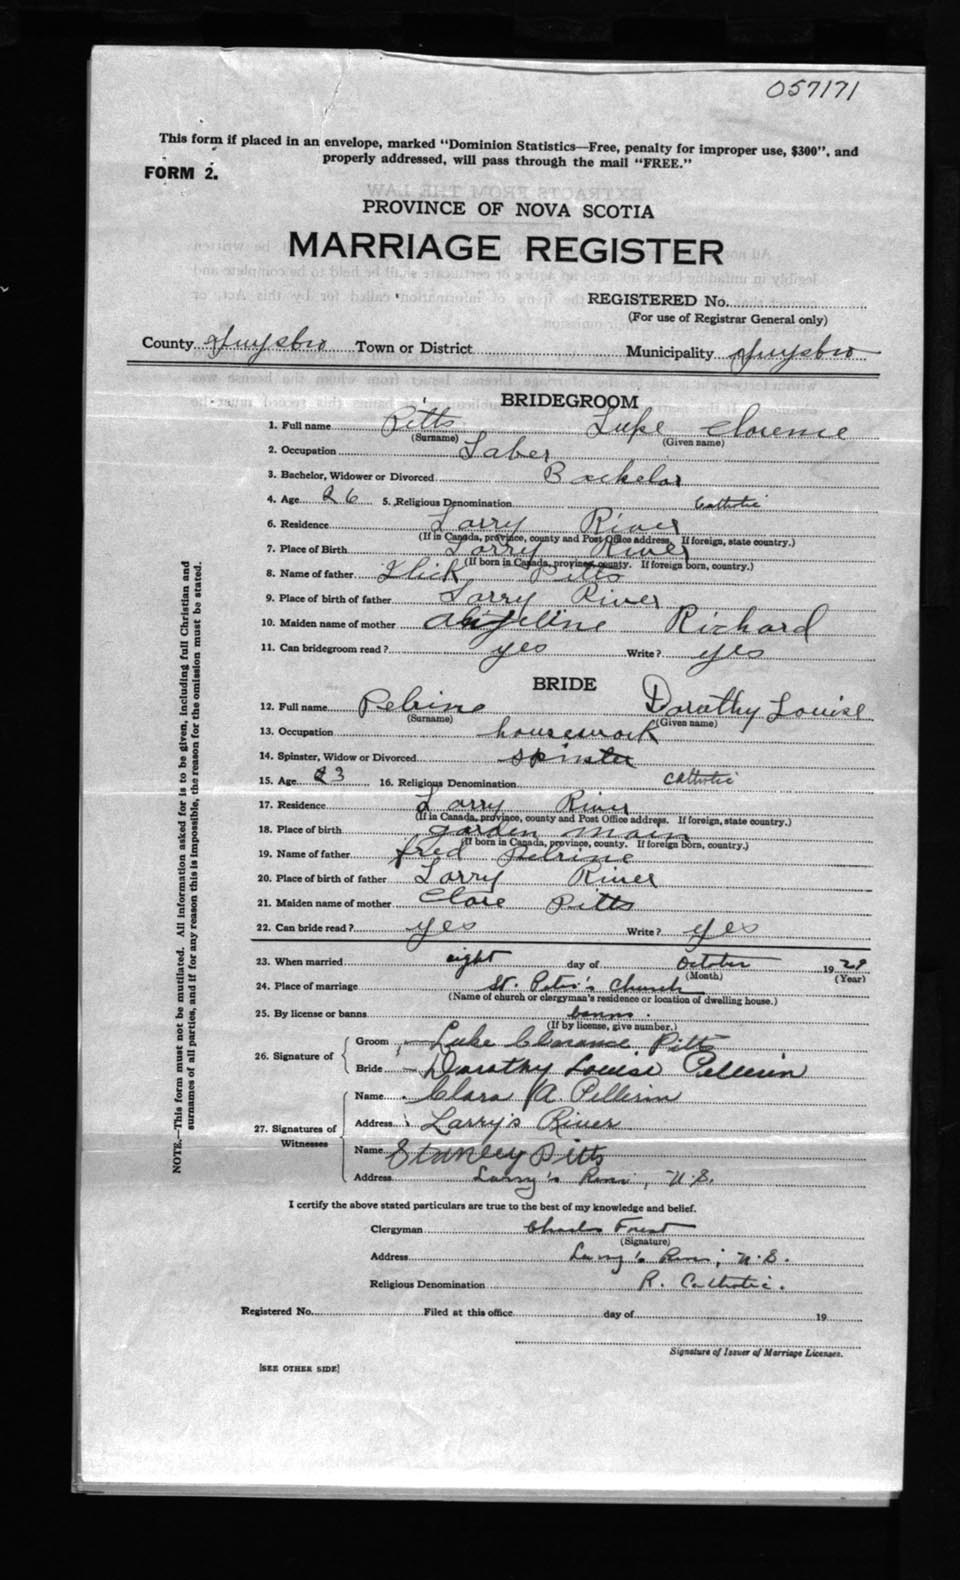 057171
This form if placed in an envelope, marked "Dominion Statistics—Free, penalty for improper use, $300", and
properly addressed, will pass through the mail "FREE."
FORM 2.
PROVINCE OF NOVA SCOTIA
MARRIAGE REGISTER
REGISTERED No.
(For use of Registrar General only)
County Guysbro Town or District Municipality Guysbro
BRIDEGROOM
1. Full name Pitts Luke Clarence
(Surname) (Given name)
2. Occupation Laber
3. Bachelor, Widower or Divorced Bachelor
4. Age 26 5. Religious Denomination Catholic
6. Residence Larry River
(If in Canada, province, county and Post Office address. If foreign, state country.)
7. Place of Birth Larry River
(If born in Canada, province, county. If foreign born, country.)
8. Name of father Pitts
9. Place of birth of father Larry River
10. Maiden name of mother Richard
11. Can bridegroom read? yes Write? yes
BRIDE
12. Full name Pelrine Dorothy Louise
(Surname) (Given name)
13. Occupation housework
14. Spinster, Widow or Divorced spinster
15. Age 23 16. Religious Denomination Catholic
17. Residence Larry River
(If in Canada, province, county and Post Office address. If foreign, state country.)
18. Place of birth garden main
(If born in Canada, province, county. If foreign born, country.)
19. Name of father fred Pelrine
20. Place of birth of father Larry River
21. Maiden name of mother Clare Pitts
22. Can bride read? yes Write? yes
23. When married eight day of October 1929
(Month) (Year)
24. Place of marriage St. Peter's Church
(Name of church or clergyman's residence or location of dwelling house.)
25. By license or banns banns.
(If by license, give number.)
26. Signature of Groom Luke Clarance Pitts
Bride Dorothy Louise Pellerin
27. Signatures of Witnesses Name Clara A. Pellerin
Address Larry's River
Name Stanley Pitts
Address Larry's River, N.S.
I certify the above stated particulars are true to the best of my knowledge and belief.
Clergyman Charles Forest
(Signature)
Address Larry's River, N.S.
Religious Denomination R. Catholic.
Registered No. Filed at this office day of 19
Signature of Issuer of Marriage Licenses.
[SEE OTHER SIDE]
NOTE.—This form must not be mutilated. All information asked for is to be given, including full Christian and
surnames of all parties, and if for any reason this is impossible, the reason for the omission must be stated.